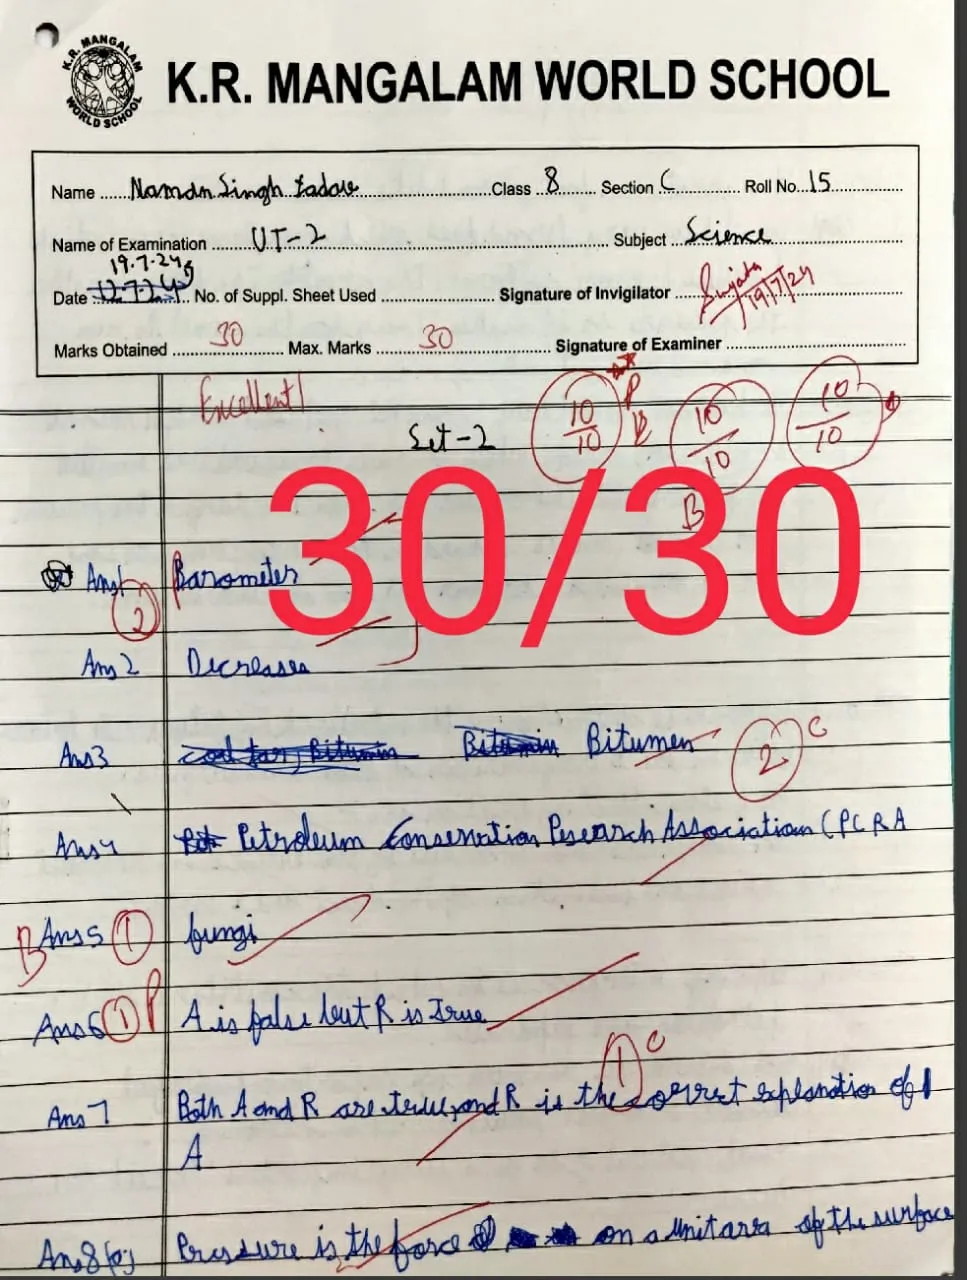 K.R. MANGALAM WORLD SCHOOL
K.R. MANGALAM WORLD SCHOOL
Name Naman Singh Yadav Class 8 Section C Roll No. 15
Name of Examination UT-2 Subject Science
19.7.24
Date 12.7.24 No. of Suppl. Sheet Used Signature of Invigilator 19/7/24
Marks Obtained 30 Max. Marks 30 Signature of Examiner
Excellent!
Set-2
10/10 P 10/10 B 10/10
30/30
Ans1 Barometer
2
Ans2 Decreases
Ans3 coal tar Bitumin Bitumin Bitumen 2 C
Ans4 Petroleum Conservation Research Association (PCRA
B Ans5 1 fungi
Ans6 1 P A is false but R is true
1 C
Ans7 Both A and R are true and R is the correct explanation of
A
Ans8(a) Pressure is the force on a unit area of the surface